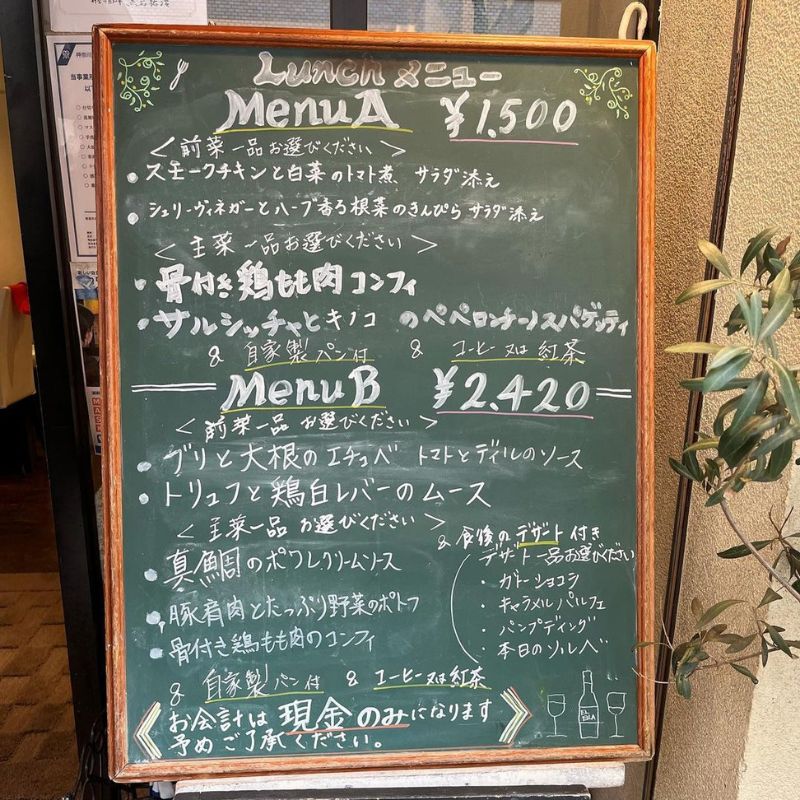 Lunch メニュー
Menu A ¥1,500
＜前菜一品お選びください＞
・スモークチキンと白菜のトマト煮、サラダ添え
・シェリーヴィネガーとハーブ香る根菜のきんぴら サラダ添え
＜主菜一品お選びください＞
・骨付き鶏もも肉コンフィ
・サルシッチャとキノコ のペペロンチーノスパゲッティ
& 自家製パン付 & コーヒー又は紅茶
Menu B ¥2,420
＜前菜一品お選びください＞
・ブリと大根のエチュベ トマトとディルのソース
・トリュフと鶏白レバーのムース
＜主菜一品お選びください＞
・真鯛のポワレクリームソース
・豚肩肉とたっぷり野菜のポトフ
・骨付き鶏もも肉のコンフィ
& 食後のデザート付き
デザート一品お選びください
・ガトーショコラ
・キャラメルパルフェ
・パンプディング
・本日のソルベ
& 自家製パン付 & コーヒー又は紅茶
お会計は現金のみになります
予めご了承ください。
神奈川
当事業所